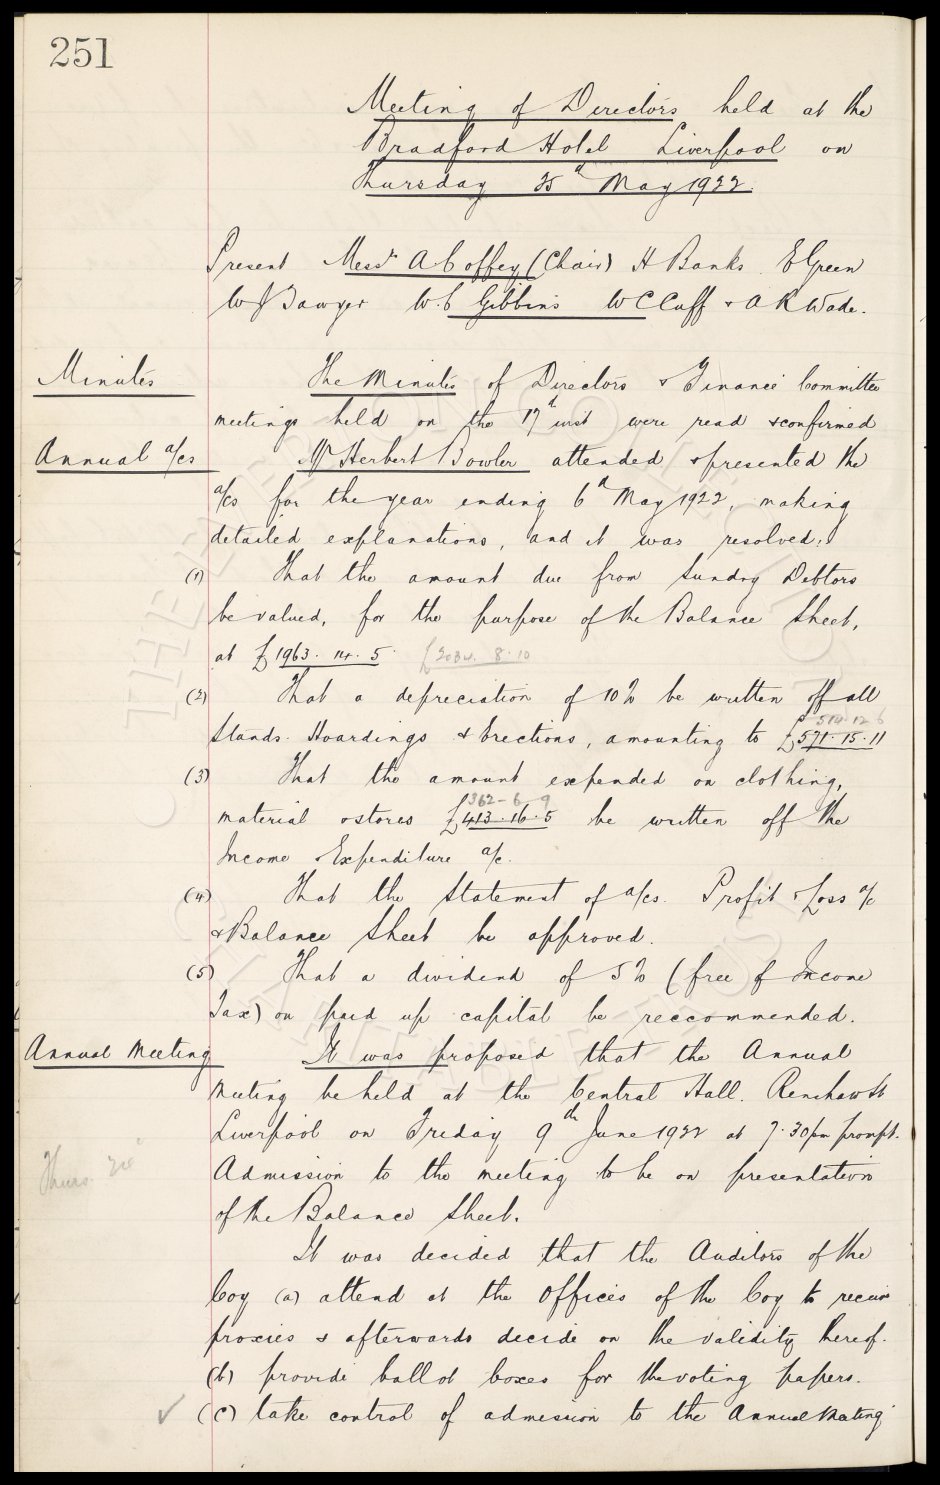 251
Meeting of Directors held at the
Bradford Hotel Liverpool on
Thursday 25th May 1922.
Present Messrs A Coffey (Chair) H Banks. E Green
W J Sawyer W. C Gibbins W C Cuff & A R Wade.
Minutes The Minutes of Directors & Finance Committee
meetings held on the 17th inst were read & confirmed
Annual a/cs Mr Herbert Bowler attended & presented the
a/cs for the year ending 6th May 1922, making
detailed explanations, and it was resolved:
(1) That the amount due from Sundry Debtors
be valued, for the purpose of the Balance Sheet,
at £1963. 14. 5 £2034. 8. 10
(2) That a depreciation of 10% be written off all
514 12 6
Stands. Hoardings & Erections, amounting to £571. 15. 11
(3) That the amount expended on clothing,
362 - 6 9
material & stores £413. 16. 5 be written off the
Income & Expenditure a/c.
(4) That the Statement of a/cs. Profit & Loss a/c
& Balance Sheet be approved.
(5) That a dividend of 5% (free of Income
Tax) on paid up capital be reccommended.
Annual Meeting It was proposed that the Annual
Meeting be held at the Central Hall. Renshaw St
Liverpool on Friday 9th June 1922 at 7.30pm prompt.
Thurs.
Admission to the meeting to be on presentation
of the Balance Sheet.
It was decided that the Auditors of the
Coy (a) attend at the Offices of the Coy to receive
proxies & afterwards decide on the validity thereof.
(b) provide ballot boxes for the voting papers.
✓ (c) take control of admission to the Annual Meeting